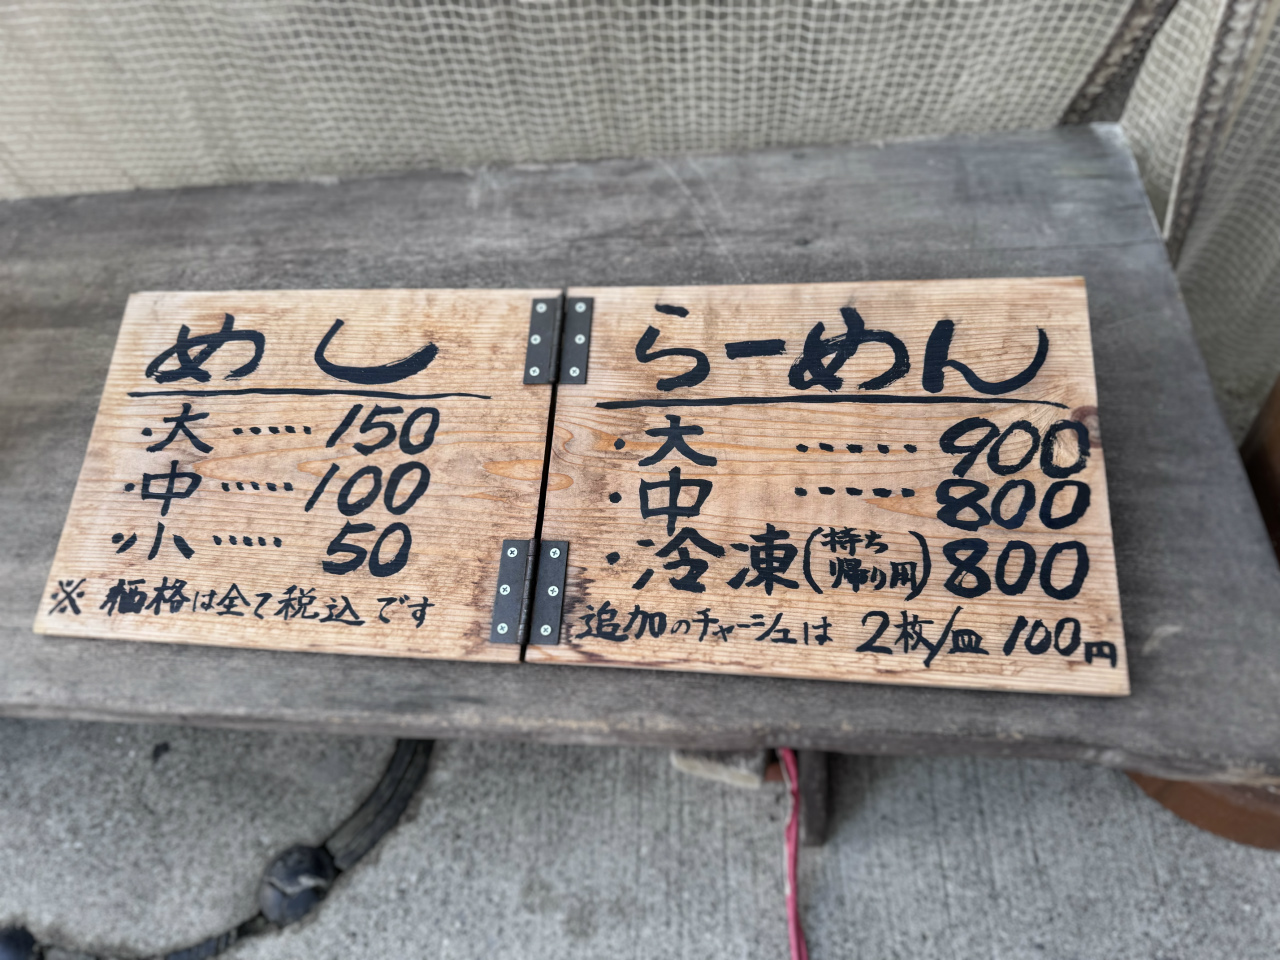 めし
・大 ・・・・・ 150
・中 ・・・・・ 100
・小 ・・・・・ 50
※ 価格は全て税込です
らーめん
・大 ・・・・・ 900
・中 ・・・・・ 800
・冷凍(持ち帰り用) 800
追加のチャーシュは 2枚/皿 100円